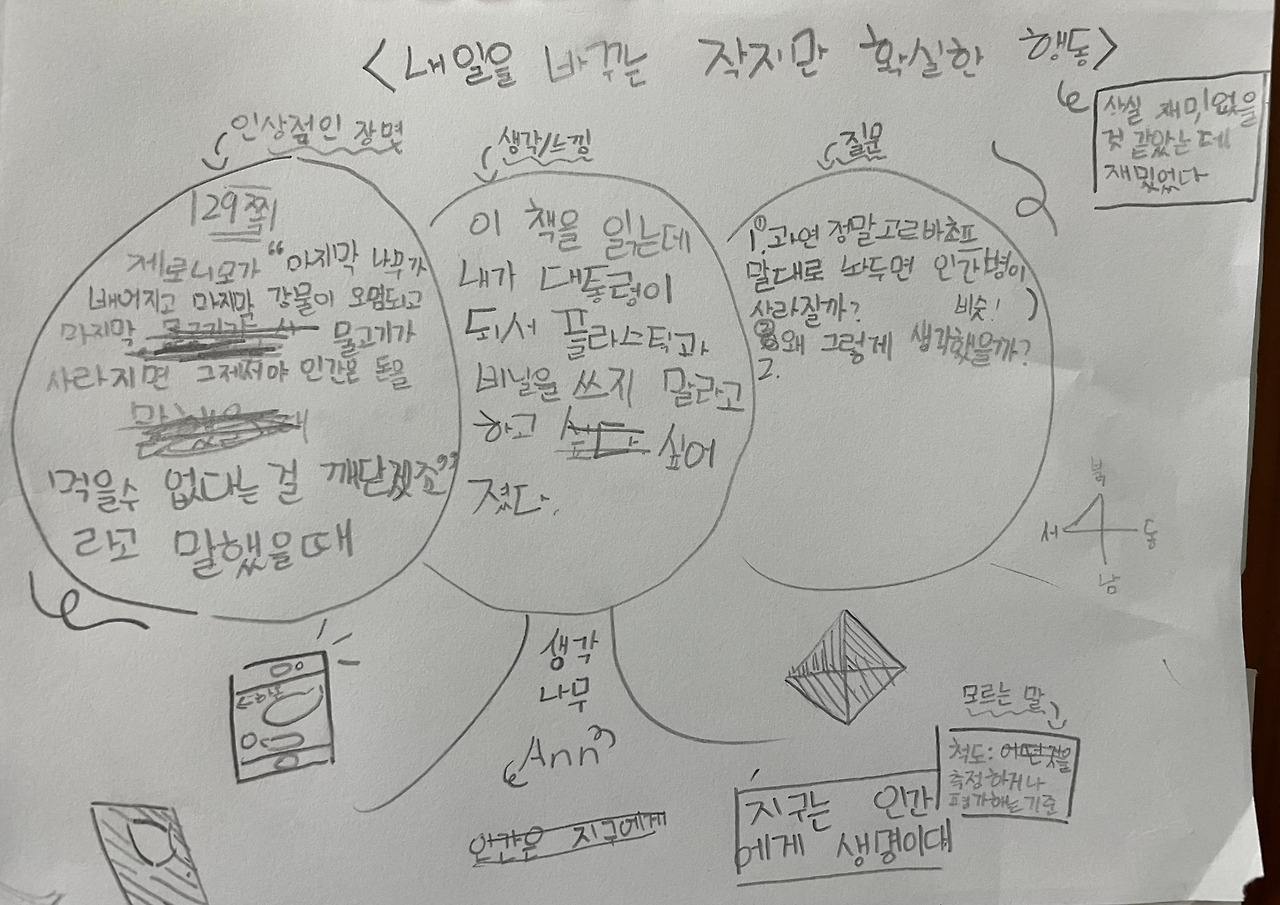 <내일을 바꾸는 작지만 확실한 행동>
사실 재미없을
것 같았는데
재밌었다
인상적인 장면
129쪽
제로니모가 "마지막 나무가
베어지고 마지막 강물이 오염되고
마지막 물고기가
사라지면 그제서야 인간은 돈을
먹을수 없다는 걸 깨닫겠죠"
라고 말했을때
생각/느낌
이 책을 읽는데
내가 대통령이
되서 플라스틱과
비닐을 쓰지 말라고
하고 싶어
졌다.
질문
1. 과연 정말 고르바초프
말대로 놔두면 인간병이
사라질까? 비슷!
왜 그렇게 생각했을까?
2.
북
서 동
남
생각
나무
Ann
인간은 지구에게
모르는 말
척도: 어떤것을
측정하거나
평가하는 기준
지구는 인간
에게 생명이다